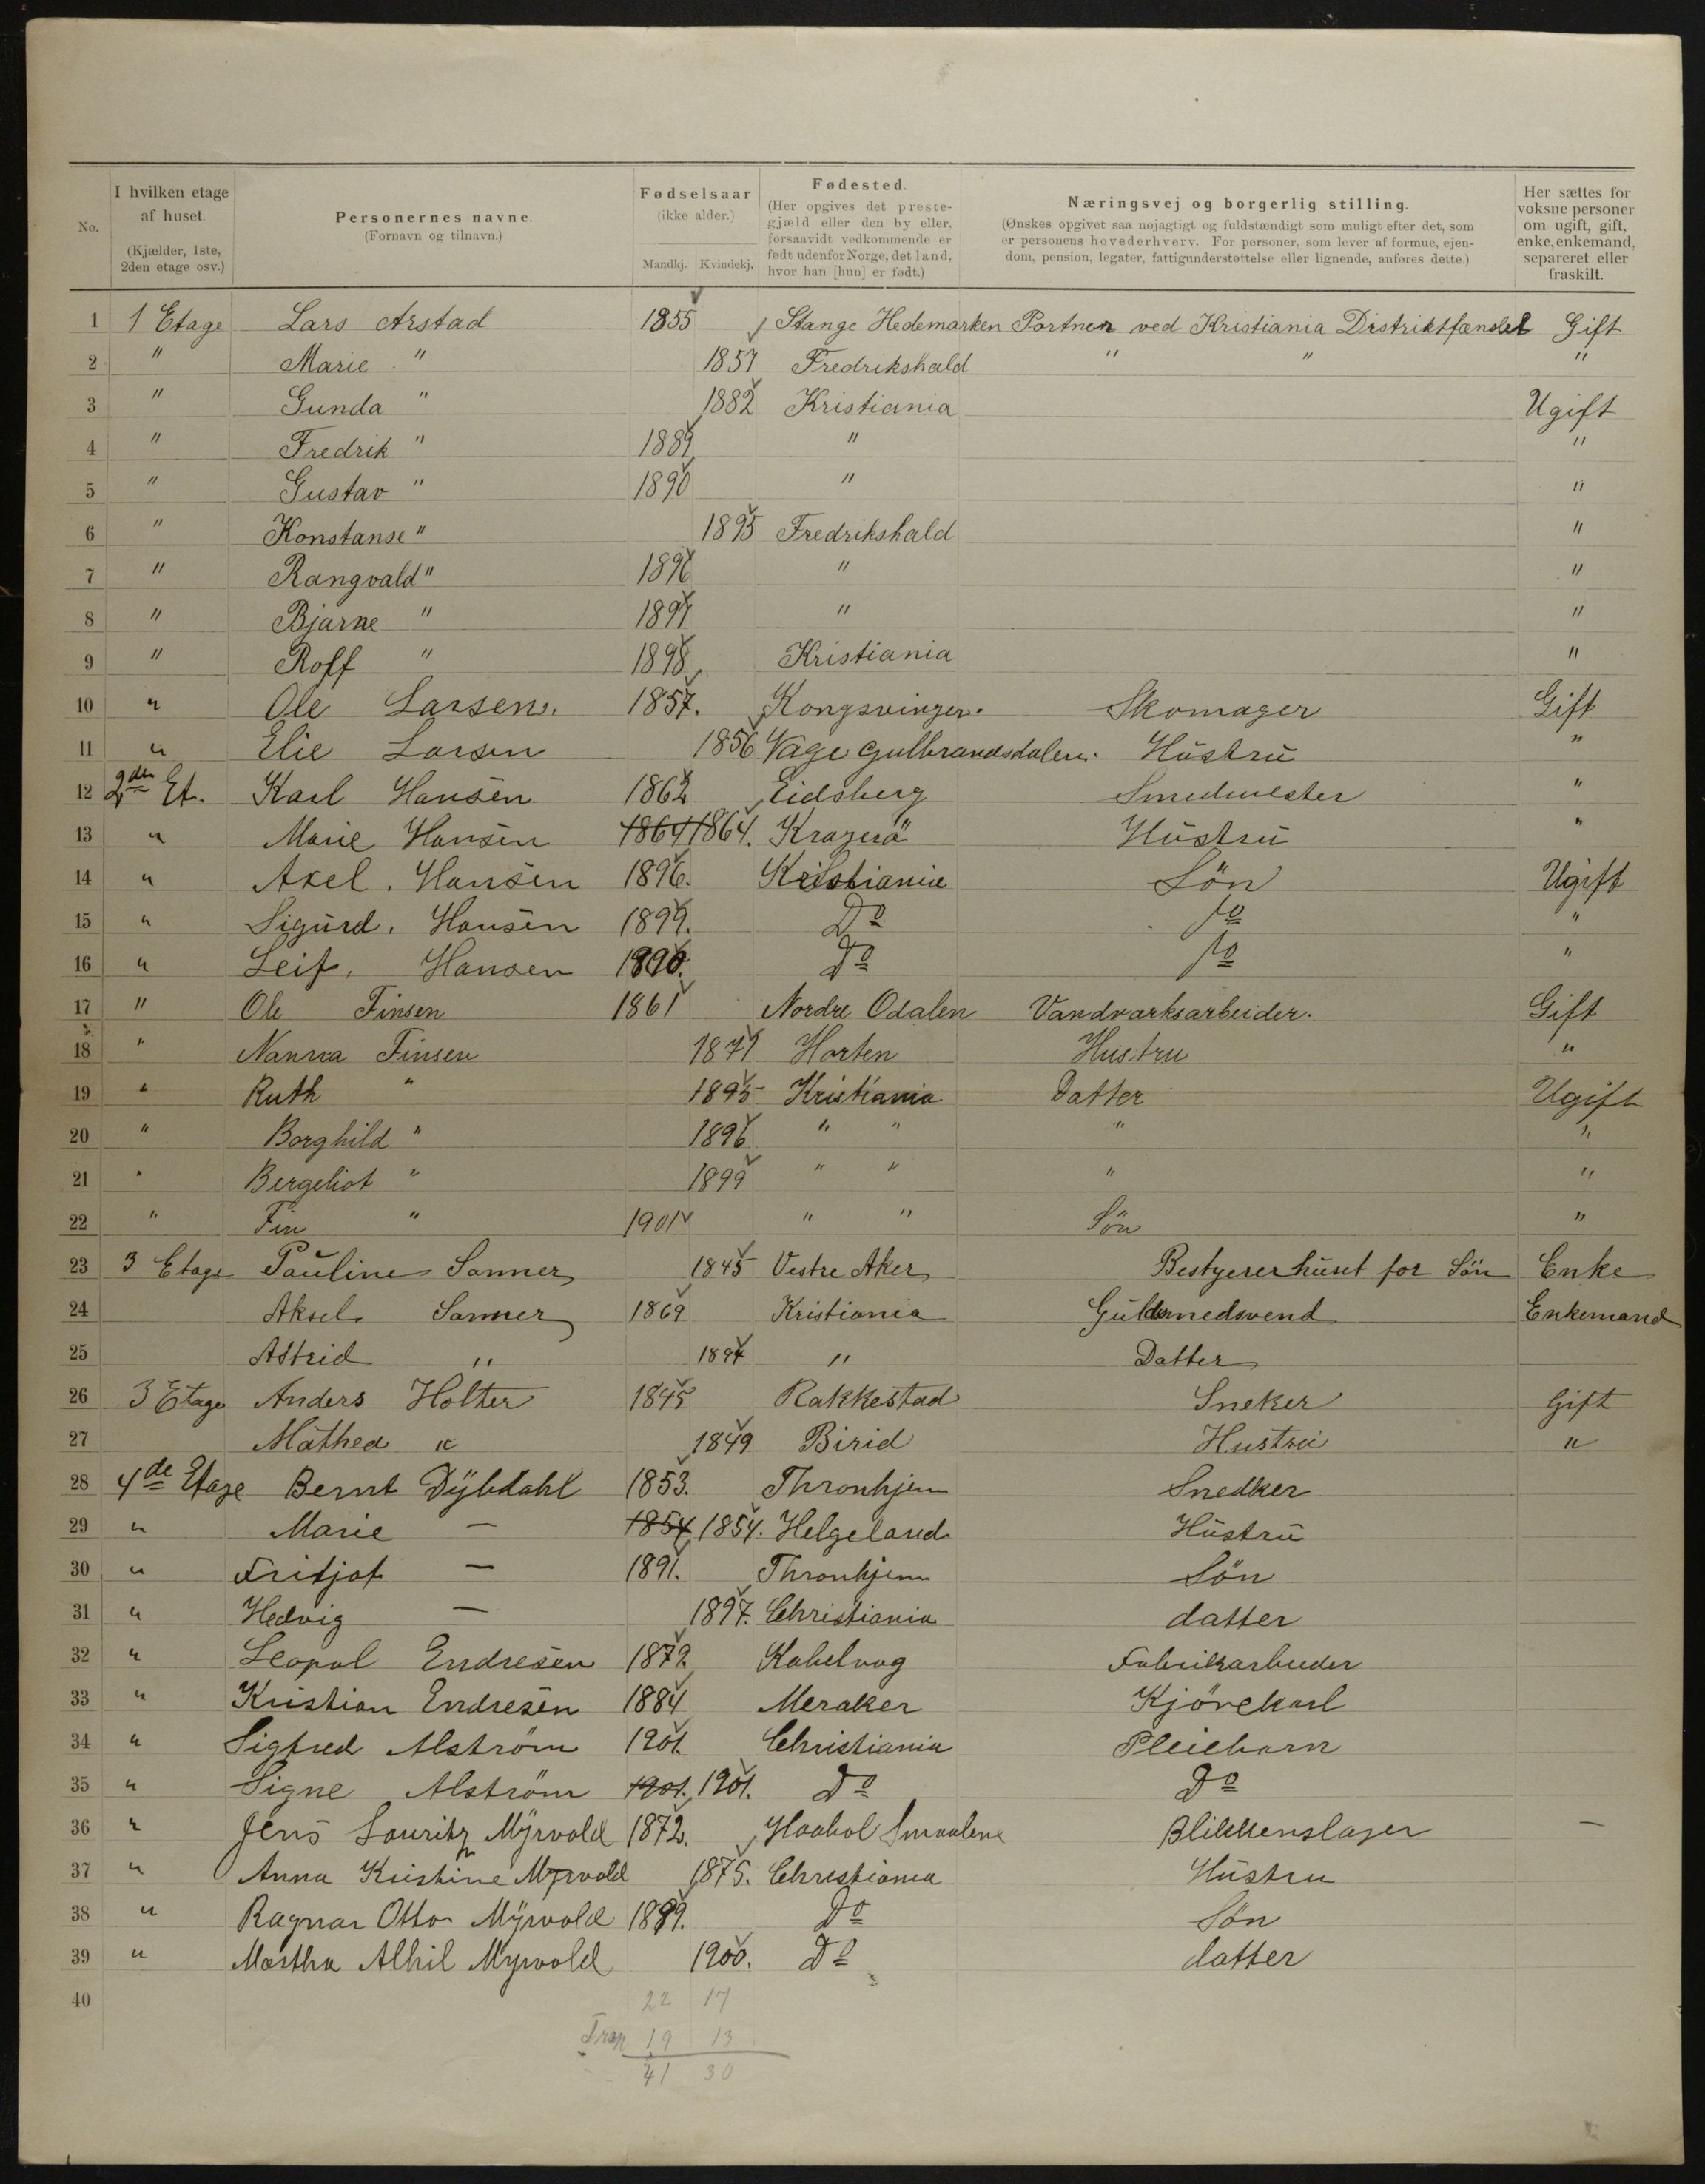 No.
I hvilken etage af huset. (Kjælder, 1ste, 2den etage osv.)
Personernes navne. (Fornavn og tilnavn.)
Fødselsaar (ikke alder.) Mandkj. Kvindekj.
Fødested. (Her opgives det prestegjæld eller den by eller, forsaavidt vedkommende er født udenfor Norge, det land, hvor han [hun] er født.)
Næringsvej og borgerlig stilling. (Ønskes opgivet saa nøjagtigt og fuldstændigt som muligt efter det, som er personens hovederhverv. For personer, som lever af formue, ejendom, pension, legater, fattigunderstøttelse eller lignende, anføres dette.)
Her sættes for voksne personer om ugift, gift, enke, enkemand, separeret eller fraskilt.
1 1 Etage Lars Arstad 1855 Stange Hedemarken Portner ved Kristiania Distriktfænslet Gift
2 " Marie " 1857 Fredrikshald " " "
3 " Gunda " 1882 Kristiania Ugift
4 " Fredrik " 1889 " "
5 " Gustav " 1890 " "
6 " Konstanse " 1895 Fredrikshald "
7 " Rangvald " 1896 " "
8 " Bjarne " 1897 " "
9 " Roff " 1898 Kristiania "
10 " Ole Larsen. 1857. Kongsvinger. Skomager Gift
11 " Elie Larsen 1856 Vage Gulbrandsdalen. Hustru "
12 2den Et. Karl Hansen 1862 Eidsberg Smedmester "
13 " Marie Hansen 1864 1864. Kragerö Hustru "
14 " Axel. Hansen 1896. Kristiania Sön Ugift
15 " Sigurd. Hansen 1899. Do do "
16 " Leif. Hansen 1890. Do do "
17 " Ole Finsen 1861 Nordre Odalen Vandværksarbeider. Gift
18 " Nanna Finsen 1871 Horten Hustru "
19 " Ruth " 1895 Kristiania Datter Ugift
20 " Borghild " 1896 " " " "
21 " Bergeliot " 1899 " " " "
22 " Fin " 1901 " " Sön "
23 3 Etage Pauline Sanner 1845 Vestre Aker Bestyerer huset for Sön Enke
24 Aksel Sanner 1869 Kristiania Guldsmedsvend Enkemand
25 Astrid " 1894 " Datter
26 3 Etage Anders Holter 1845 Rakkestad Sneker Gift
27 Mathea " 1849 Birid Hustru "
28 4de Etage Bernt Dÿbdahl 1853. Thronhjem Snedker
29 " Marie — 1854 1854. Helgeland Hustru
30 " Fritjof — 1891. Thronhjem Sön
31 " Hedvig — 1897. Christiania datter
32 " Leopol Endresen 1872. Kabelvog Fabrikarbeider
33 " Kristian Endresen 1884 Meraker Kjörekarl
34 " Sigfred Alström 1901. Christiania Pleiebarn
35 " Signe Alström 1901. 1901. Do Do
36 " Jens Lauritz Mÿrvold 1872. Haabol Smaalene Blikkenslager —
37 " Anna Kristine Myrvold 1875. Christiania Hustru
38 " Ragnar Otto Mÿrvold 1899. Do Sön
39 " Martha Alhil Myrvold 1900. Do datter
40
22 17
Trap 19 13
41 30